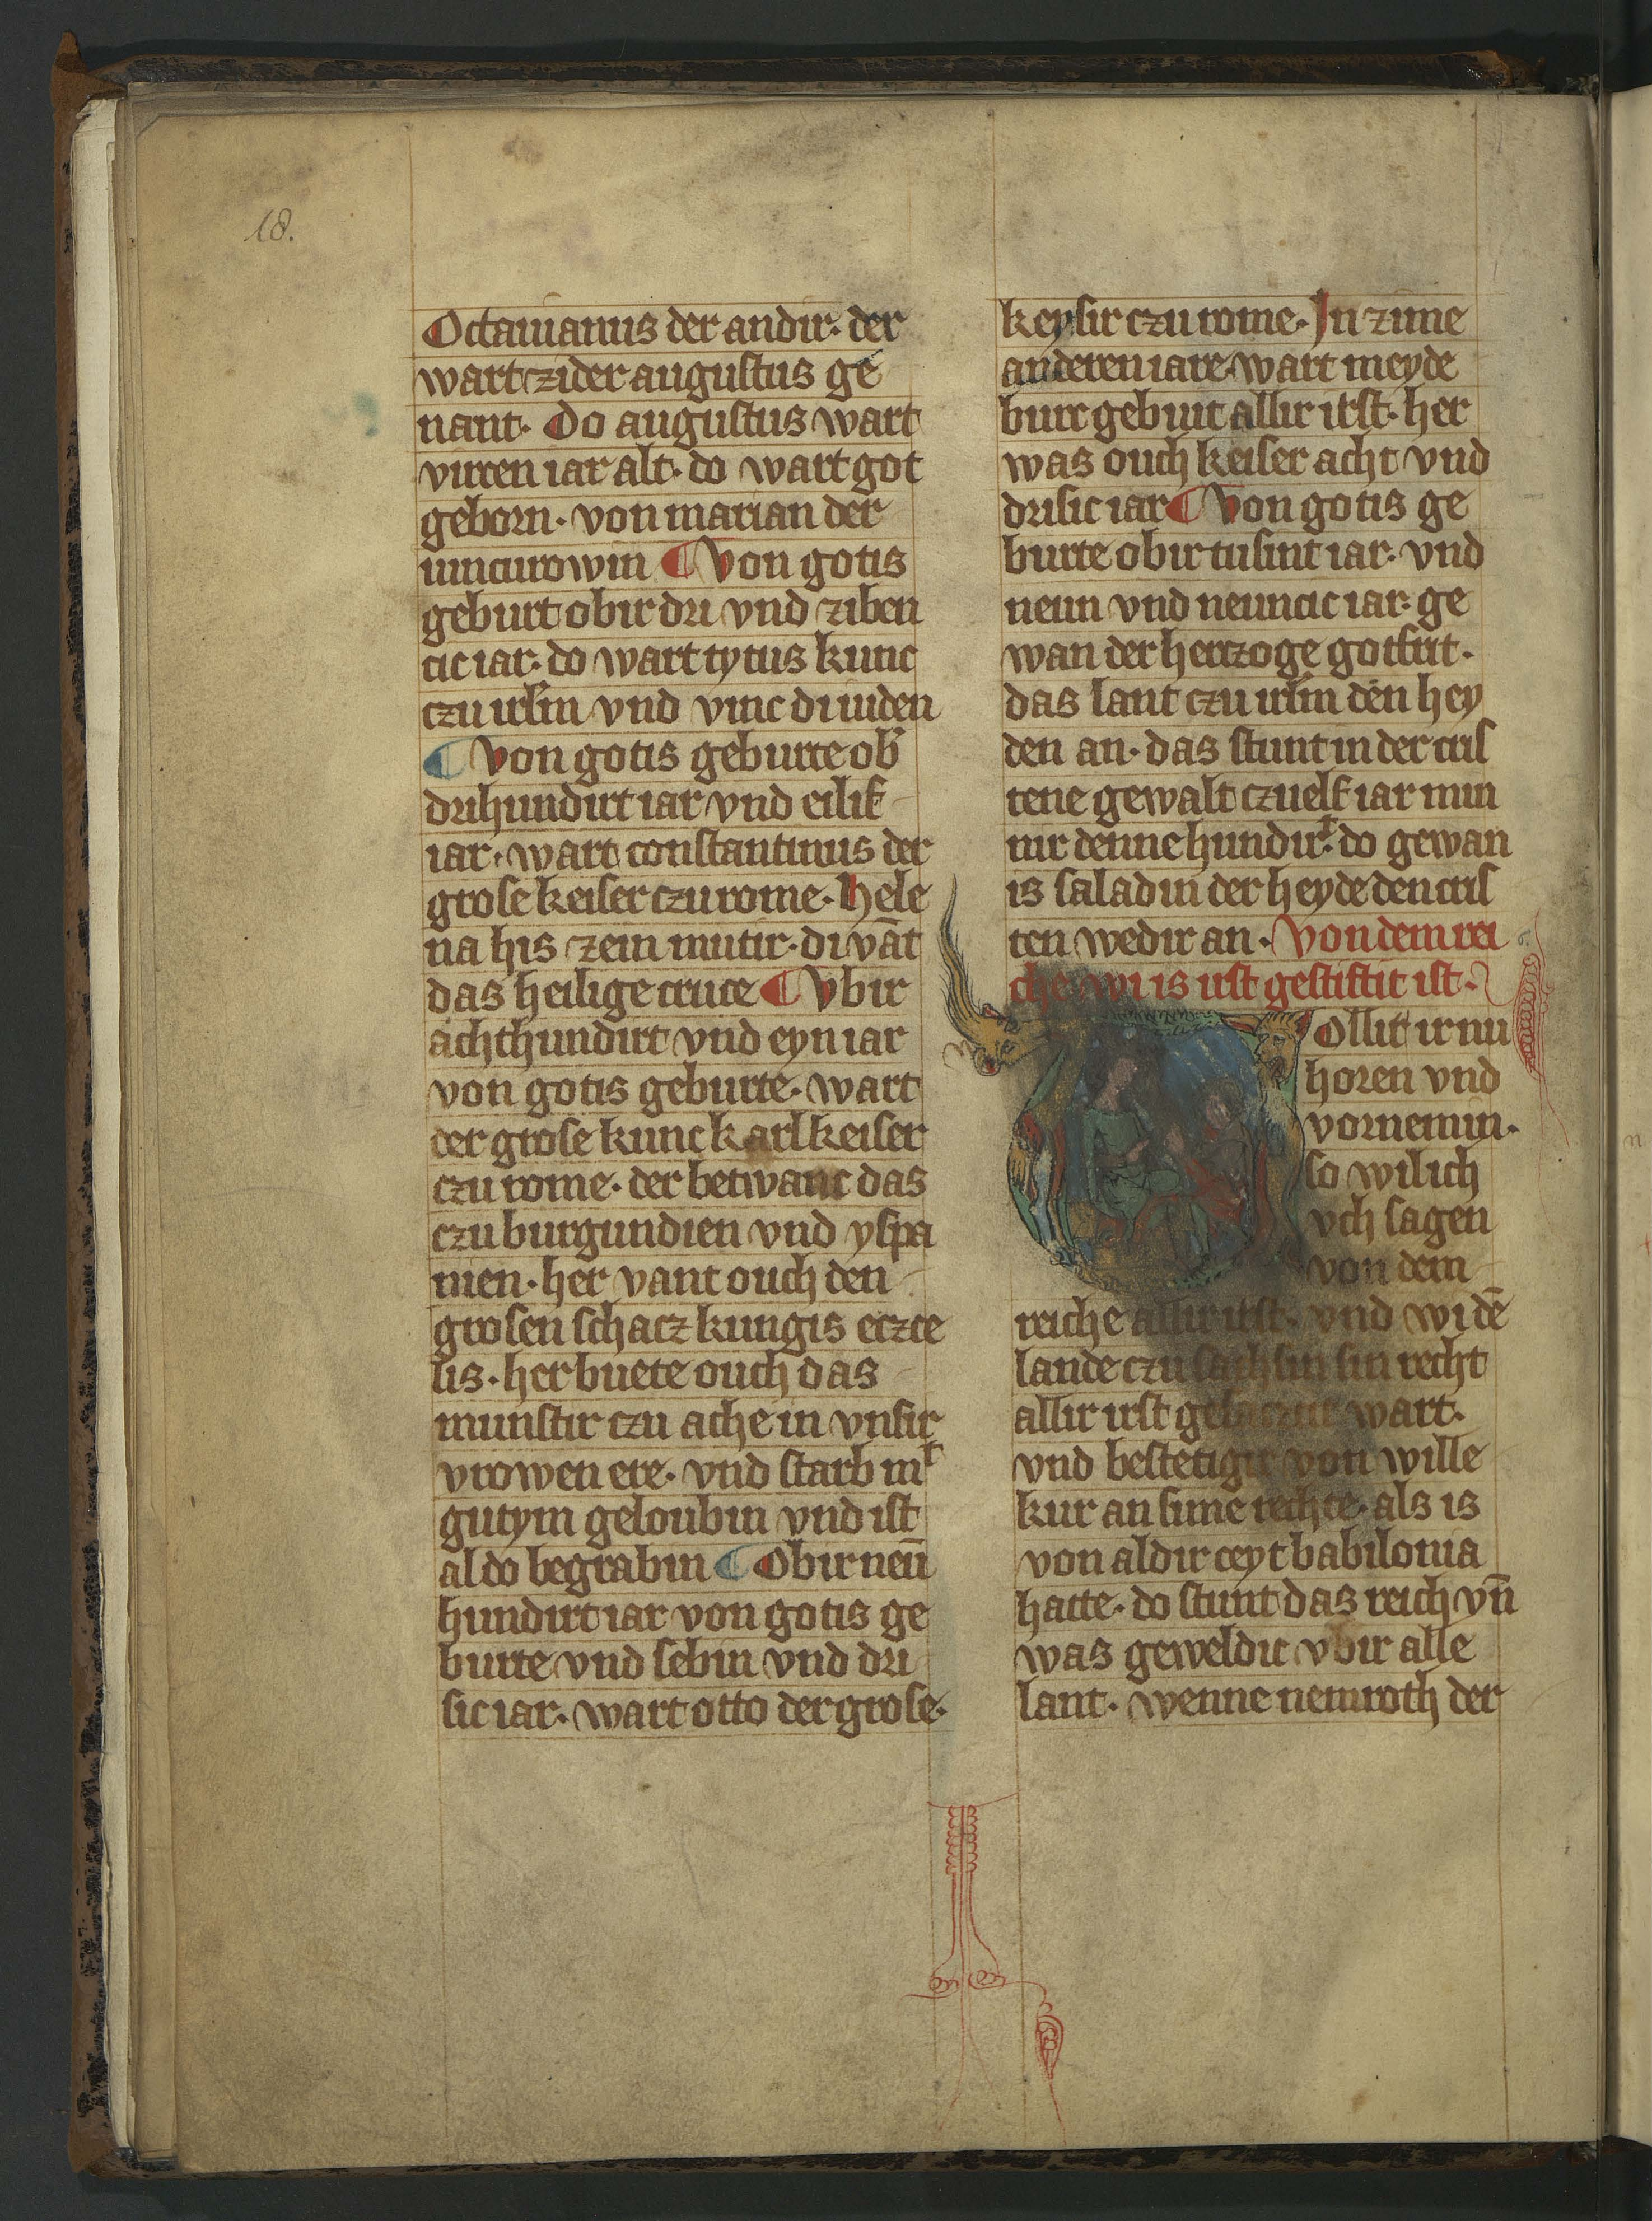 18.
Octauianus der andir· der
wart zider augustus ge
nant· Do augustus wart
virzen iar alt· do wart got
geborn· von marian der
iuncurowin ¶ Von gotis
geburt obir dri vnd ziben
cic iar· do wart tytus kunc
czu irl̄m vnd vinc di iuden
¶ Von gotis geburte ob̛
drihundirt iar vnd eilif
iar· wart constantinus der
grose keiser czu rome· Hele
na his zein mutir· di vāt
das heilige cruce ¶ Vbir
achthundirt vnd eyn iar
von gotis geburte· wart
der grose kunc karl keiser
czu rome· der betwanc das
czu burgundien vnd yspa
nien· her vant ouch den
grosen schacz kungis eczce
lis· her buete ouch das
munstir czu ache in vnsir
vrowen ere· vnd starb mͭ
gutym geloubin vnd ist
aldo begrabin ¶ Obir neū
hundirt iar von gotis ge
burte vnd sebin vnd dri
sic iar· wart otto der grose·
keysir czu rome· In zime
anderen iare· wart meyde
burc gebuit allir irst· her
was ouch keiser acht vnd
drisic iar ¶ Von gotis ge
burte obir tusint iar· vnd
neun vnd neuncic iar· ge
wan der hertzoge gotfrit·
das lant czu irl̄m den hey
den an· das stunt in der cris
tene gewalt czuelf iar min
nir denne hundirͭ· do gewan
is saladin der heyde den cris
ten wedir an· Von dem rei
che wi is irst gestiftit ist·
Ollit ir nu
horen vnd
vornemin·
so wil ich
vch sagen
von dem
reiche allir irst· vnd wi dē
lande czu sachsin sin recht
allir irst gesaczcit wart·
vnd bestetigit von wille
kur an sime rechte· als is
von aldir ceyt babilonia
hatte· do stunt das reich vn̄
was geweldic vbir alle
lant· wenne nemroth der